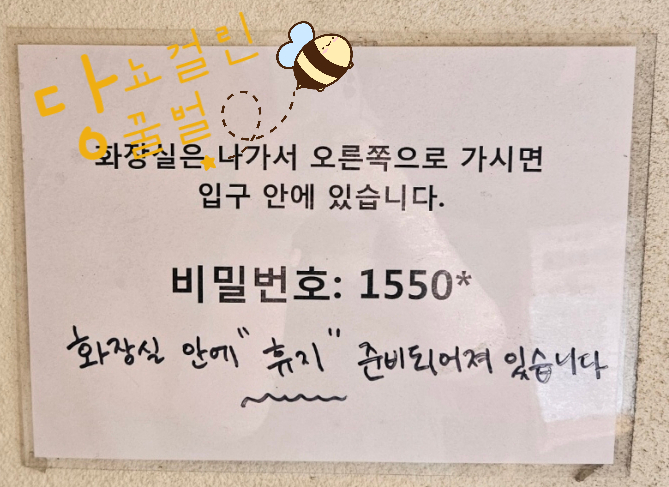 당뇨걸린
꿀벌
화장실은 나가서 오른쪽으로 가시면
입구 안에 있습니다.
비밀번호: 1550*
화장실 안에 "휴지" 준비되어져 있습니다